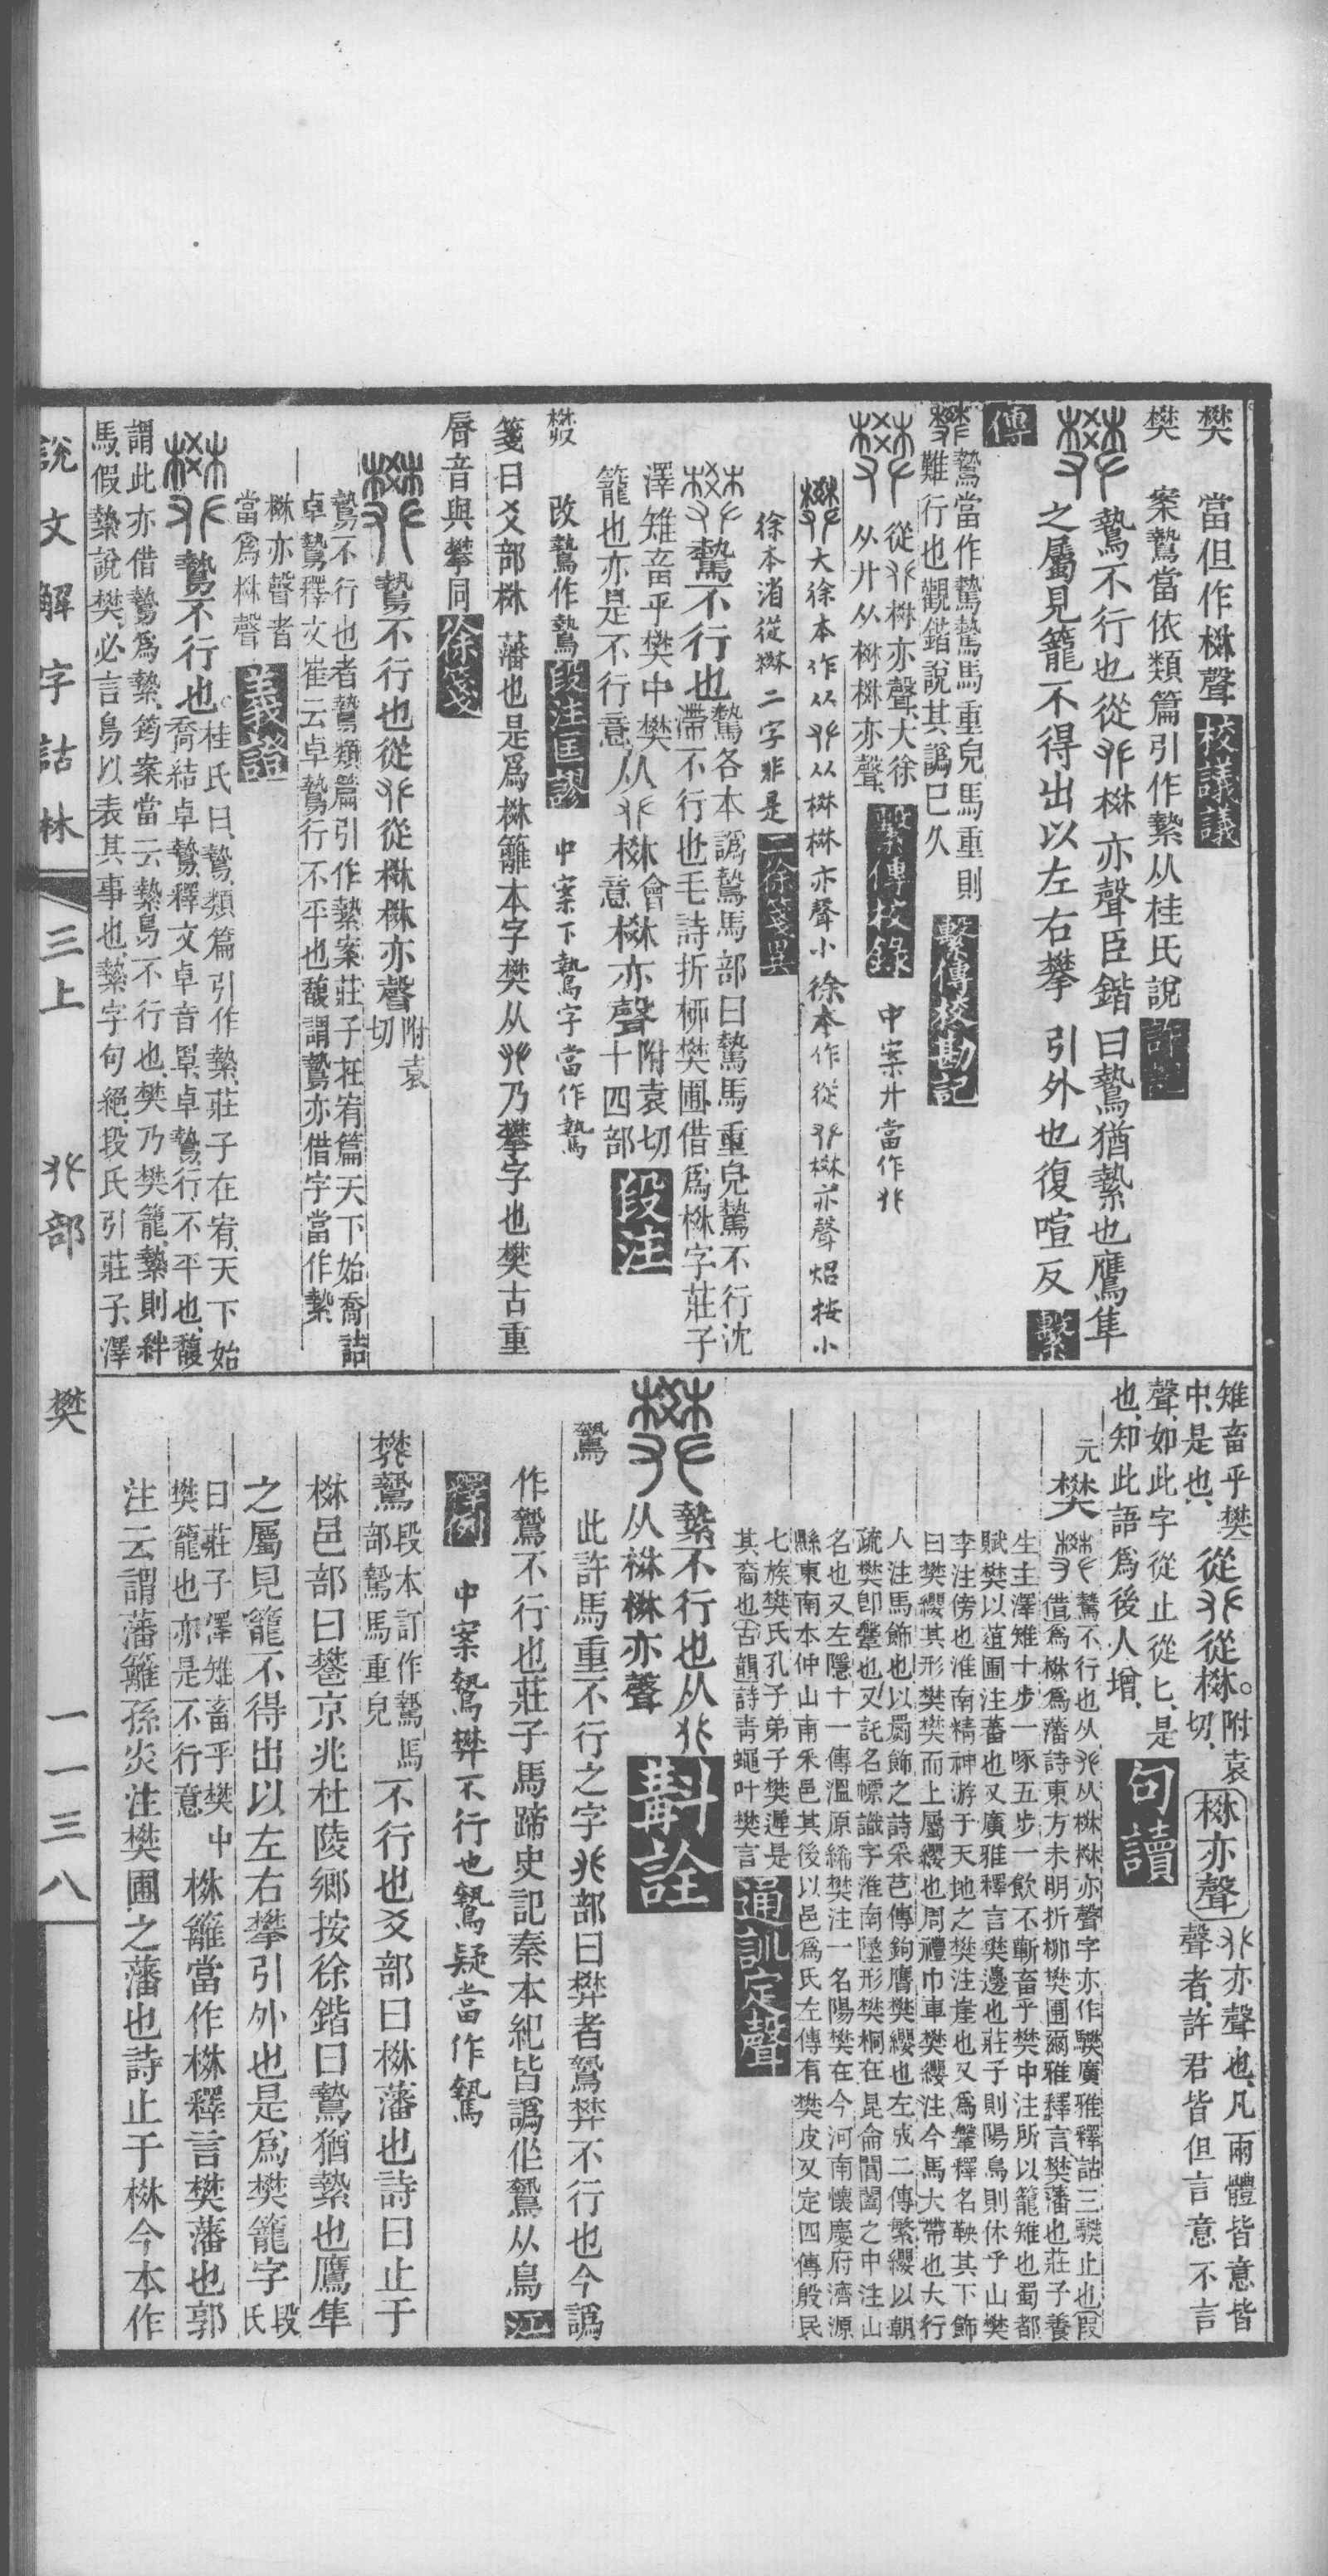 樊 當但作棥聲 校議議
樊 案鷙當依類篇引作縶从桂氏說 許記
樊 鷙不行也從𠬜棥亦聲臣鍇曰鷙猶縶也鷹隼
之屬見籠不得出以左右攀 引外也復喧反 繫
傳
樊 鷙當作驇驇馬重皃馬重則
難行也觀鍇說其譌巳久 繫傳校勘記
樊 從𠬜棥亦聲、大徐
从廾从棥棥亦聲、 繫傳校錄 中案廾當作𠬜
樊 大徐本作从𠬜从棥棥亦聲小徐本作從𠬜棥亦聲炤按小
徐本消從棥二字非是 二徐箋異
樊 驇不行也 驇各本譌鷙馬部曰驇馬重皃驇不行沈
滯不行也毛詩折柳樊圃借爲棥字莊子
澤雉畜乎樊中樊
籠也亦是不行意 从𠬜棥會棥意棥亦聲 附袁切
十四部 段注
樊 改鷙作驇 段注匡謬 中案下鷙字當作驇
箋曰爻部棥 藩也是爲棥籬本字樊从𠬜乃攀字也樊古重
脣音與攀同 徐箋
樊 鷙不行也從𠬜從棥棥亦聲 附袁
切
鷙不行也者鷙類篇引作縶案莊子在宥篇天下始喬詰
卓鷙釋文崔云卓鷙行不平也馥謂鷙亦借字當作縶
棥亦聲者
當爲棥聲 義證
樊 鷙不行也。 桂氏曰、鷙、類篇引作縶、莊子在宥、天下始
喬詰卓鷙、釋文卓音罩、卓鷙、行不平也、馥
謂此亦借鷙爲縶、筠案當云縶鳥不行也、樊乃樊籠、縶則絆
馬、假縶說樊、必言鳥以表其事也、縶字句絕、段氏引莊子、澤
雉畜乎樊
中、是也、 從𠬜從棥。 附袁
切、 棥亦聲 𠬜亦聲也、凡兩體皆意皆
聲者、許君皆但言意不言
聲、如此字從止從匕、是
也、知此語爲後人增、 句讀
元 樊 驇不行也从𠬜从棥棥亦聲字亦作騻廣雅釋詁三騻止也 叚
借 爲棥爲藩詩東方未明折柳樊圃爾雅釋言樊藩也莊子養
生主澤雉十步一啄五步一飲不蘄畜乎樊中注所以籠雉也蜀都
賦樊以蒩圃注蕃也又廣雅釋言樊邊也莊子則陽鳥則休乎山樊
李注傍也淮南精神游于天地之樊注崖也又爲鞶釋名鞅其下飾
曰樊纓其形樊樊而上屬纓也周禮巾車樊纓注今馬大帶也大行
人注馬飾也以罽飾之詩采芑傳鉤膺樊纓也左成二傳繁纓以朝
疏樊卽鞶也又託名幖識字淮南墬形樊桐在昆侖閶闔之中注山
名也又左隱十一傳溫原絺樊注一名陽樊在今河南懷慶府濟源
縣東南本仲山甫采邑其後以邑爲氏左傳有樊皮又定四傳殷民
七族樊氏孔子弟子樊遲是
其裔也 古韻 詩青蠅叶樊言 通訓定聲
樊 縶不行也从𠬜
从棥棥亦聲 斠詮
驇 此許馬重不行之字𠬜部曰樊者驇樊不行也今譌
作鷙不行也莊子馬蹄史記秦本紀皆譌作鷙从鳥 江
釋例 中案鷙樊不行也鷙疑當作驇
樊鷙 段本訂作驇馬
部驇馬重皃 不行也爻部曰棥藩也詩曰止于
棥邑部曰䣊京兆杜陵鄉按徐鍇曰鷙猶縶也鷹隼
之屬見籠不得出以左右攀引外也是爲樊籠字 段
氏
曰莊子澤雉畜乎樊中
樊籠也亦是不行意 棥籬當作棥釋言樊藩也郭
注云謂藩籬孫炎注樊圃之藩也詩止于棥今本作
說文解字詁林 三上 𠬜部 樊 一一三八